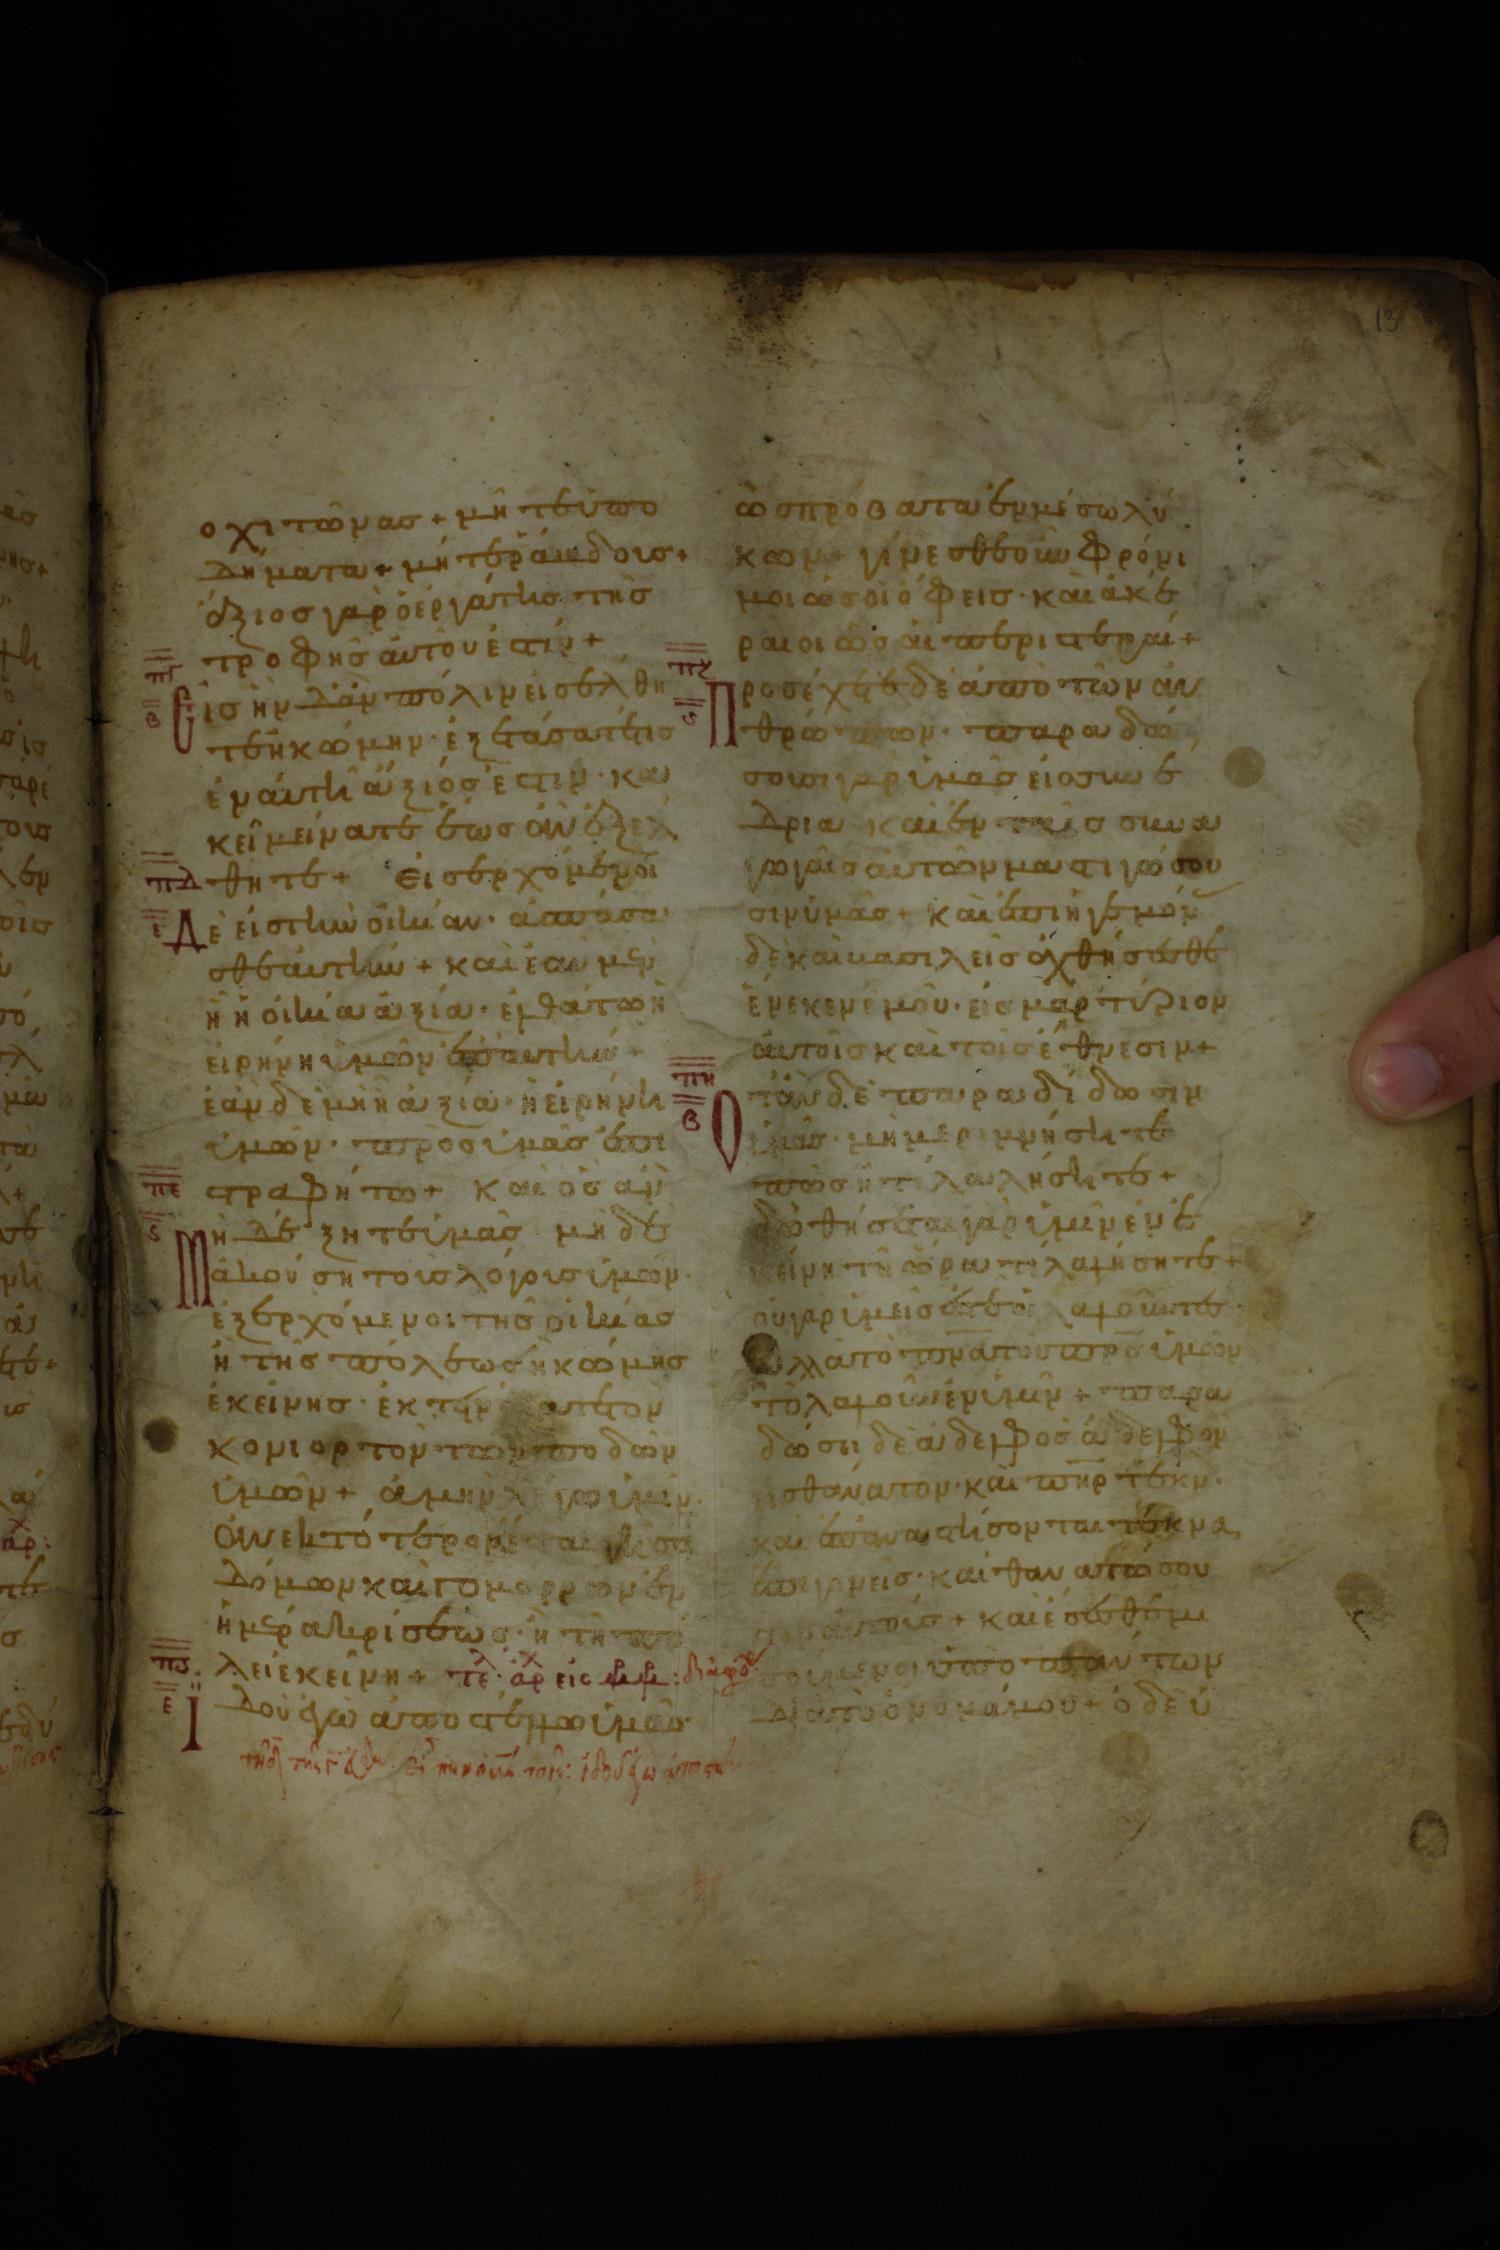 13
ο χιτῶνας + μὴ τε ὑπο
δήματα + μή τε ῥάβδους +
ἄξιος γὰρ ὁ ἐργάτης τῆς
τροφῆς αὐτοῦ ἐστιν +
πγ
β
Εἰς ἣν δ' ἂν πόλιν εἰσέλθη
τε ἢ κώμην· ἐξετάσατε τίς
ἐν αὐτῇ ἄξιός ἐστιν· κα
κεῖ μείνατε ἕως ἂν ἐξέλ
πδ
θητε + Εἰσερχόμενοι
ε
Δὲ εἰς τὴν οἰκίαν· ἀσπάσα
σθε αὐτήν + καὶ ἐὰν μὲν
ᾖ ἡ οἰκία ἀξία· ἐλθάτω ἡ
εἰρήνη ὑμῶν ἐπ αὐτήν +
ἐὰν δὲ μὴ ᾖ ἀξία· ἡ εἰρήνη
ὑμῶν· πρὸς ὑμᾶς ἐπι
πε
στραφήτω + Καὶ ὃς ἂν
ς
Μὴ δέξητε ὑμᾶς μηδὲ
ἀκούσῃ τοὺς λόγους ὑμῶν·
ἐξερχόμενοι τῆς οἰκίας
ἢ τῆς πόλεως ἢ κώμης
ἐκείνης· ἐκτινάξατε τὸν
κονιορτὸν τῶν ποδῶν
ὑμῶν + ἀμὴν λέγω ὑμῖν·
ἀνεκτότερον ἔσται γῇ σο
δόμων καὶ γομορρων ἐν
ἡμέρα κρίσεως· ἢ τῇ πό
πς
λει ἐκείνη +
ε
Ἰδοὺ ἐγὼ ἀποστέλλω ὑμᾶς
ὡς πρόβατα ἐν μέσω λύ
κων + γίνεσθε οὖν φρόνι
μοι ὡς οἱ ὄφεις· καὶ ἀκέ
ραιοι ὡς αἱ περιστεραί +
πζ
ς
Προσέχετε δὲ ἀπὸ τῶν ἀν
θρώπων· παραδώ
σουσι γὰρ ὑμᾶς εἰς συνέ
δρια καὶ ἐν ταῖς συνα
γωγαῖς αὐτῶν μαστιγώσου
σιν ὑμᾶς + καὶ ἐπὶ ἡγεμόν
δὲ καὶ βασιλεῖς ἀχθήσεσθε
ἕνεκεν ἐμοῦ· εἰς μαρτύριον
αὐτοῖς καὶ τοῖς ἔθνεσιν +
πη
β
Ὅταν δὲ παραδίδωσιν
ὑμᾶς· μὴ μεριμνήσητε
πῶς ἢ τί λαλήσητε +
δοθήσεται γὰρ ὑμῖν ἐν ἐ
κείνη τῇ ὥρα τί λαλήσητε +
οὐ γὰρ ὑμεῖς ἐστὲ οἱ λαλοῦντες·
ἀλλὰ τὸ πνα του πρς ὑμῶν
τὸ λαλοῦν ἐν ὑμῖν + παρα
δώσει δὲ ἀδελφὸς ἀδελφὸν
εἰς θάνατον· καὶ πηρ τέκν·
καὶ ἐπαναστήσονται τέκνα
ἐπὶ γονεῖς· καὶ θανατώσου
σιν αὐτούς + καὶ ἔσεσθε μι
σούμενοι ὑπὸ πάντων
διὰ τὸ ὄνομά μου + ὁ δὲ ὑ